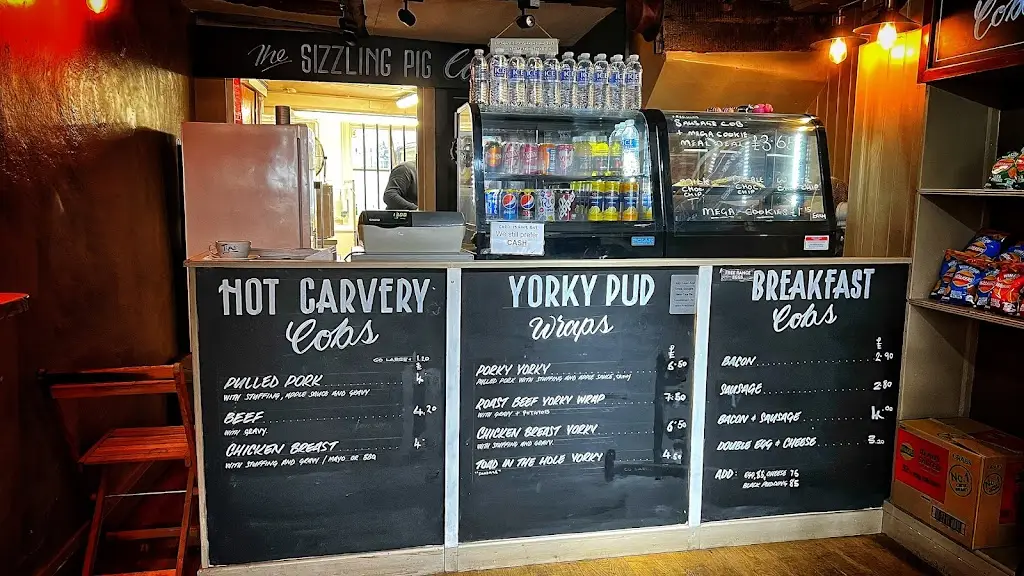 The SIZZLING PIG
SAUSAGE COB
MEGA COOKIE
MEAL DEAL £3.65
CHOC CHIP
MEGA-COOKIES
We still prefer
CASH
pepsi
HOT CARVERY
Cobs
GO LARGE: 1.20
£
PULLED PORK 4.
WITH STUFFING, APPLE SAUCE AND GRAVY
BEEF 4.20
WITH GRAVY.
CHICKEN BREAST 4.
WITH STUFFING AND GRAVY / MAYO OR BBQ
YORKY PUD
Wraps
£
PORKY YORKY 6.50
PULLED PORK WITH STUFFING AND APPLE SAUCE, GRAVY
ROAST BEEF YORKY WRAP 7.50
WITH GRAVY + POTATOES
CHICKEN BREAST YORKY 6.50
WITH STUFFING AND GRAVY.
TOAD IN THE HOLE YORKY
FREE RANGE
EGGS
BREAKFAST
Cobs
£
BACON 2.90
SAUSAGE 2.80
BACON + SAUSAGE 4.00
DOUBLE EGG + CHEESE 3.20
ADD: EGG, CHEESE 75
BLACK PUDDING 85